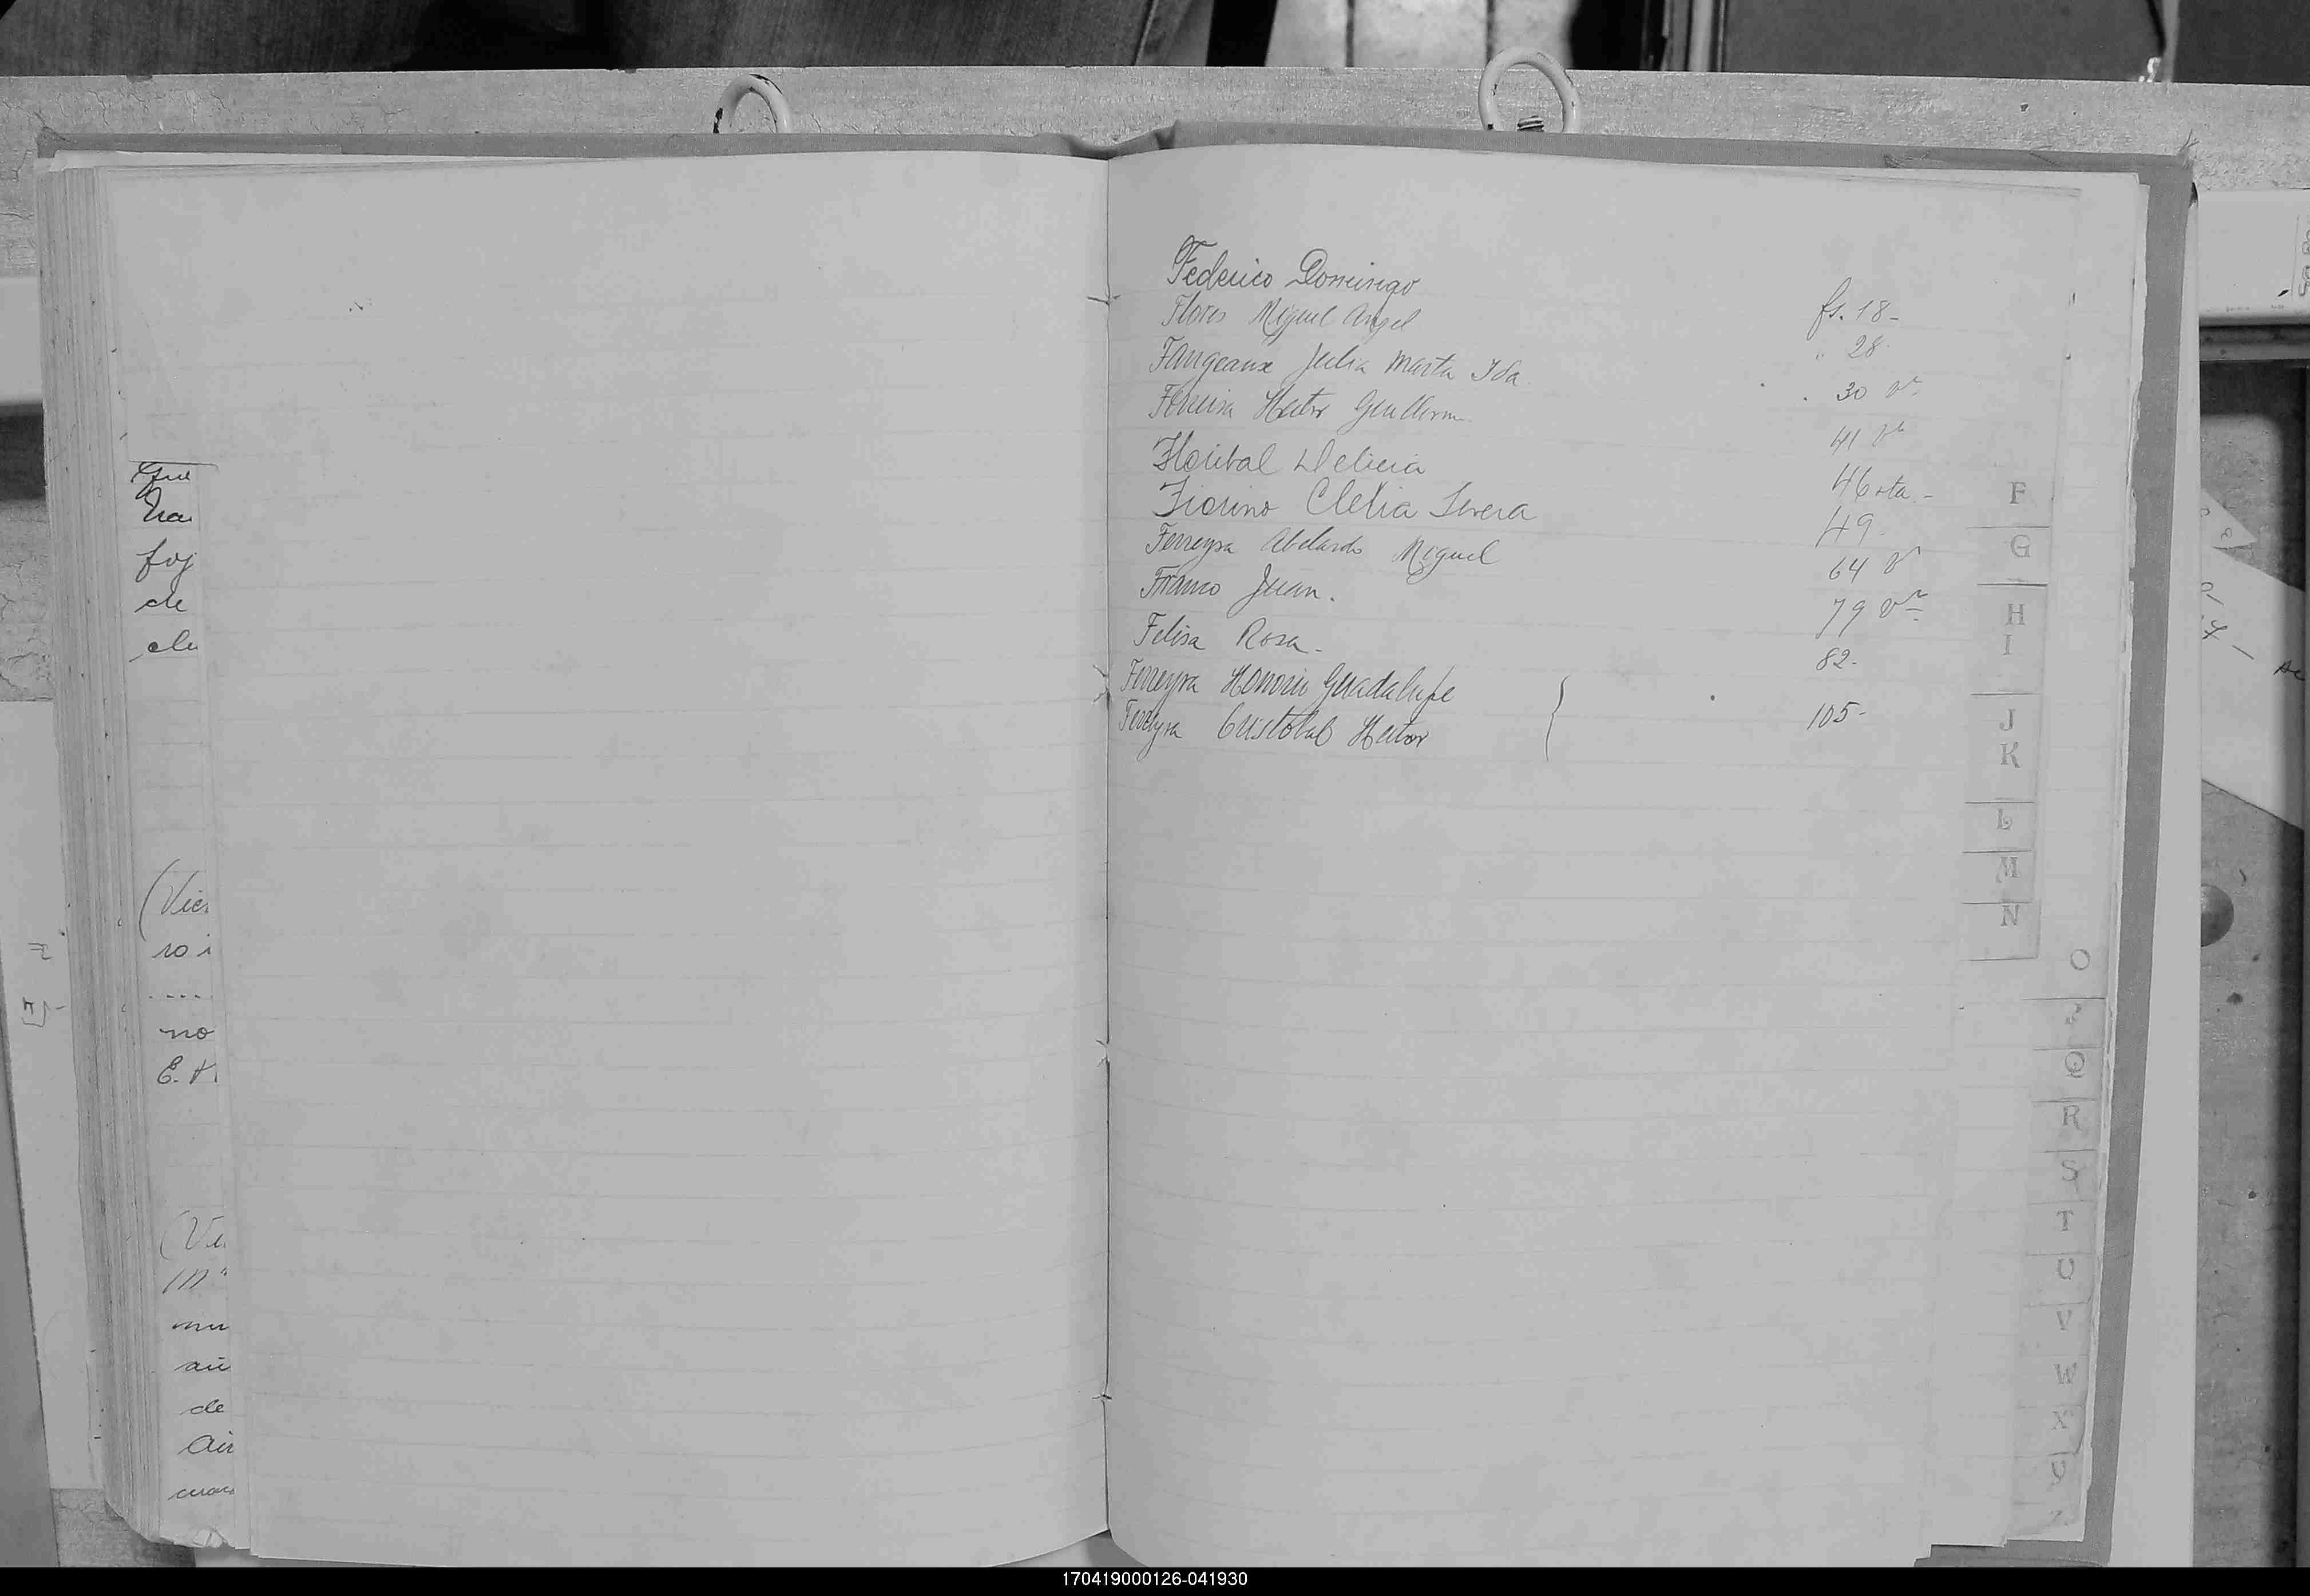 Federico Domingo fs. 18-
Flores Miguel Angel " 28
Faugeaux Julia Marta Ida 30 vta
Ferreira Hector Guillerm 41 vta
Floribal Delicia 46 vta.-
Fiorino Clelia Severa 49.
Ferreyra Abelardo Miguel 64 v
Franco Juan. 79 vta
Felisa Rosa.- 82.-
Ferreyra Honorio Guadalupe
Ferreyra Cristobal Hector 105-
F
G
H
I
J
K
L
M
N
O
P
Q
R
S
T
U
V
W
X
Y
Z
foj
de
(Vic
ro i
....
no
(Vi
mu
de
170419000126-041930